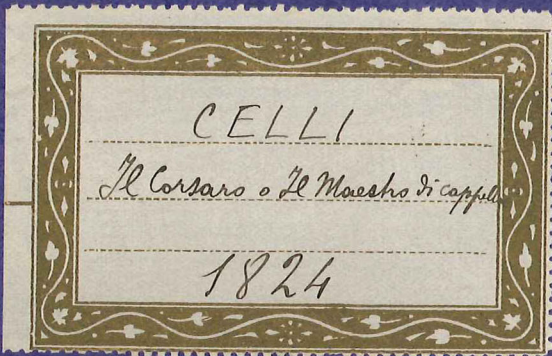 CELLI
Il Corsaro o Il Maestro di cappella
1824